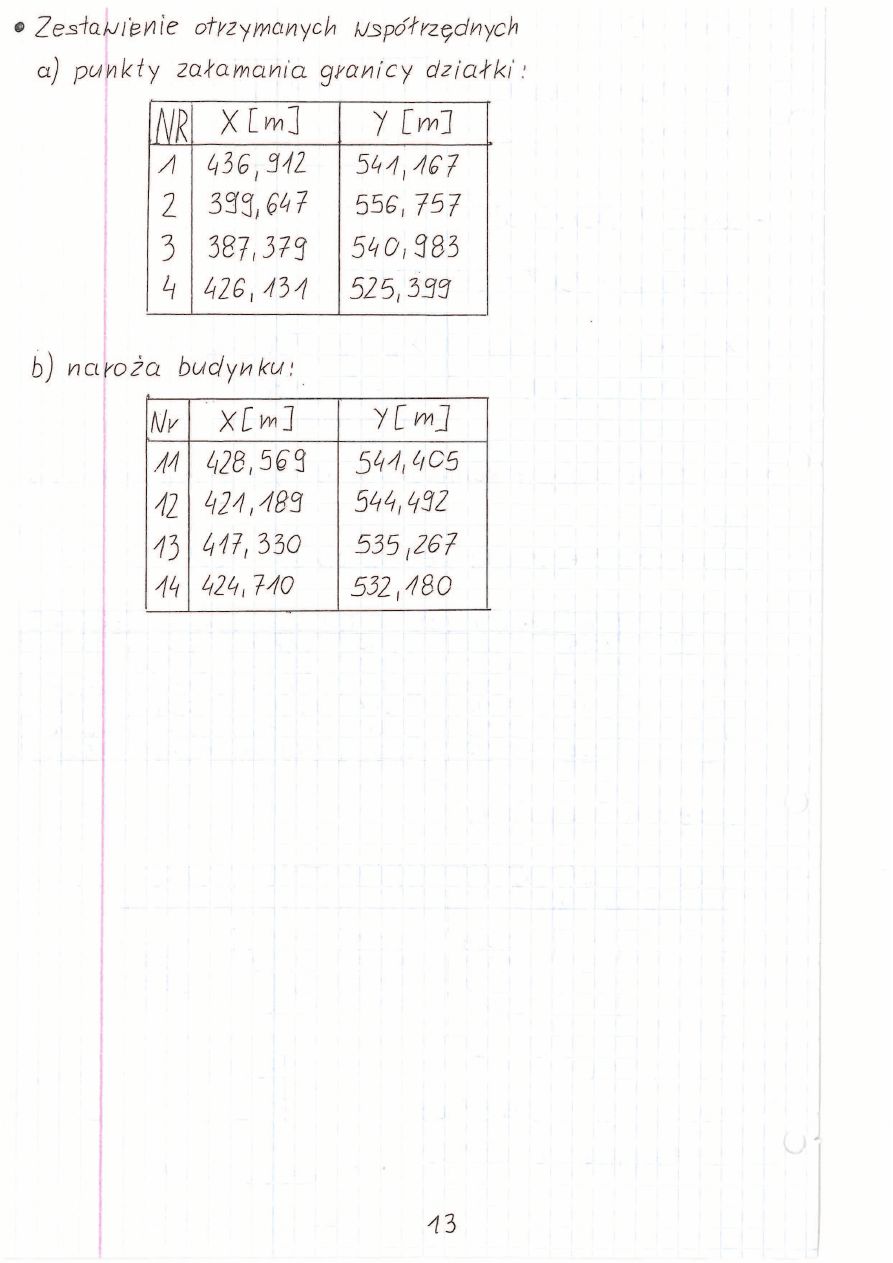 • Zestawienie otrzymanych współrzędnych
a) punkty załamania granicy działki:
NR X [m] Y [m]
1 436,912 541,167
2 399,647 556,757
3 387,379 540,983
4 426,131 525,399
b) naroża budynku:
Nr X [m] Y [m]
11 428,569 541,405
12 421,189 544,492
13 417,330 535,267
14 424,710 532,180
13